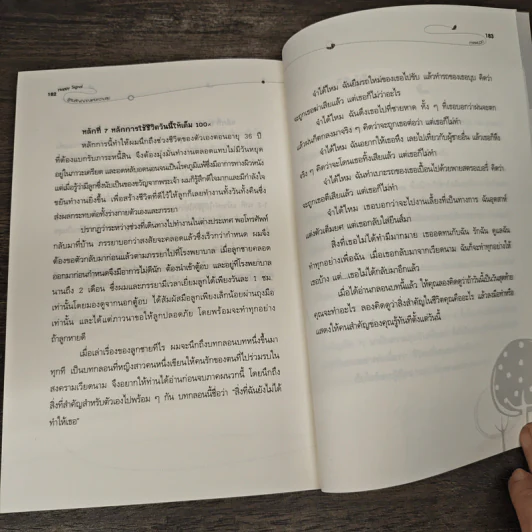 182 Health Signal
หลักที่ 7 หลักการใช้ชีวิตวันนี้ให้เต็ม 100
หลักการนี้ทำให้ผมนึกถึงช่วงชีวิตของตัวเองตอนอายุ 36 ปี
ที่ต้องแบกรับภาระหนี้สิน จึงต้องมุ่งมั่นทำงานตลอดแทบไม่มีวันหยุด
อยู่ในภาวะเครียด และอดหลับอดนอนจนเป็นโรคภูมิแพ้ซึ่งมีอาการทางผิวหนัง
แต่เมื่อรู้ว่ามีลูกซึ่งนับเป็นของขวัญจากพระเจ้า ผมก็รู้สึกดีใจมากและมีกำลังใจ
ขยันทำงานยิ่งขึ้น เพื่อสร้างชีวิตที่ดีไว้ให้ลูกก็เลยทำงานทั้งวันทั้งคืนซึ่ง
ส่งผลกระทบต่อทั้งร่างกายตัวเองและภรรยา
ปรากฏว่าระหว่างช่วงที่เดินทางไปทำงานในต่างประเทศ พอโทรศัพท์
กลับมาที่บ้าน ภรรยาบอกว่าสงสัยจะคลอดแล้วซึ่งเร็วกว่ากำหนด ผมจึง
ต้องขอตัวกลับมาก่อนแล้วตามภรรยาไปที่โรงพยาบาล เมื่อลูกชายคลอด
ออกมาก่อนกำหนดจึงมีอาการไม่ดีนัก ต้องนำเข้าตู้อบ และอยู่ที่โรงพยาบาล
นานถึง 2 เดือน ซึ่งผมและภรรยามีเวลาเยี่ยมลูกได้เพียงวันละ 1 ชม.
เท่านั้นโดยมองดูจากนอกตู้อบ ได้สัมผัสมือลูกเพียงเล็กน้อยผ่านถุงมือ
เท่านั้น และได้แต่ภาวนาขอให้ลูกปลอดภัย โดยพร้อมจะทำทุกอย่าง
ถ้าลูกหายดี
เมื่อเล่าเรื่องของลูกชายทีไร ผมจะนึกถึงบทกลอนบทหนึ่งขึ้นมา
ทุกที เป็นบทกลอนที่หญิงสาวคนหนึ่งเขียนให้คนรักของตนที่ไปร่วมรบใน
สงครามเวียดนาม จึงอยากให้ท่านได้อ่านก่อนจบภาคผนวกนี้ โดยนึกถึง
สิ่งที่สำคัญสำหรับตัวเองไปพร้อม ๆ กัน บทกลอนนี้ชื่อว่า "สิ่งที่ฉันยังไม่ได้
ทำให้เธอ"
183
จำได้ไหม ฉันยืมรถใหม่ของเธอไปขับ แล้วทำรถของเธอบุบ คิดว่า
จะถูกเธอฆ่าเสียแล้ว แต่เธอก็ไม่ว่าอะไร
จำได้ไหม ฉันดึงเธอไปที่ชายหาด ทั้ง ๆ ที่เธอบอกว่าฝนจะตก
แล้วฝนก็ตกลงมาจริง ๆ คิดว่าจะถูกเธอต่อว่า แต่เธอก็ไม่ทำ
จำได้ไหม ฉันอยากให้เธอหึง เลยไปเที่ยวกับผู้ชายอื่น แล้วเธอก็หึง
จริง ๆ คิดว่าจะโดนเธอทิ้งเสียแล้ว แต่เธอก็ไม่ทำ
จำได้ไหม ฉันทำเบาะรถของเธอเปื้อนไปด้วยพายสตรอเบอรี่ คิดว่า
จะถูกเธอตีเสียแล้ว แต่เธอก็ไม่ทำ
จำได้ไหม เธอบอกว่าจะไปงานเลี้ยงที่เป็นทางการ ฉันอุตส่าห์
แต่งตัวเต็มยศ แต่เธอกลับใส่ยีนส์มา
สิ่งที่เธอไม่ได้ทำมีมากมาย เธออดทนกับฉัน รักฉัน ดูแลฉัน
ทำทุกอย่างเพื่อฉัน เมื่อเธอกลับมาจากเวียดนาม ฉันก็จะทำทุกอย่างให้
เธอบ้าง แต่...เธอไม่ได้กลับมาอีกแล้ว
เมื่อได้อ่านกลอนบทนี้แล้ว ให้คุณลองคิดดูว่าถ้าวันนี้เป็นวันสุดท้าย
คุณจะทำอะไร ลองคิดดูว่าสิ่งสำคัญในชีวิตคุณคืออะไร แล้วลงมือทำหรือ
แสดงให้คนสำคัญของคุณรู้ทันทีตั้งแต่วันนี้